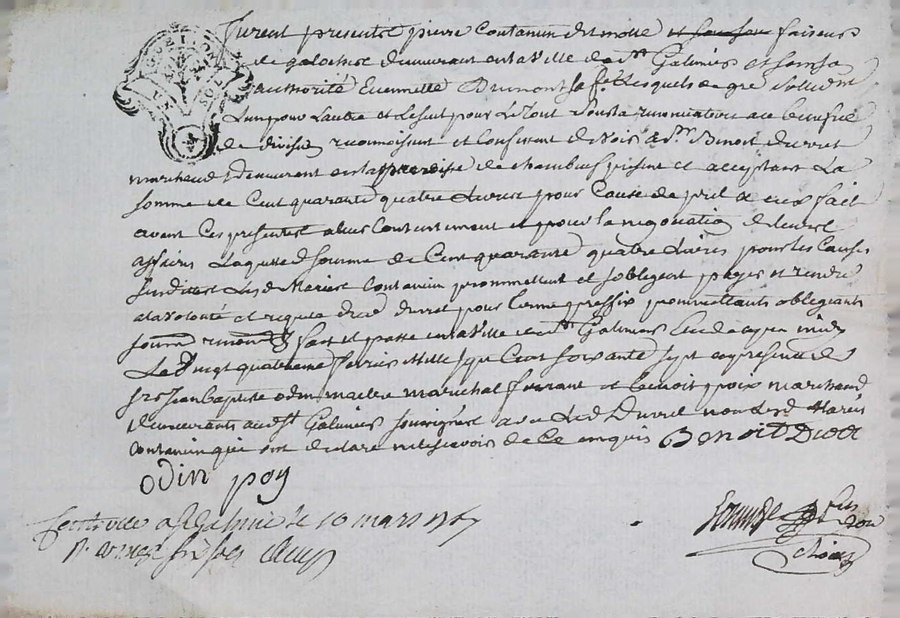 furent presents pierre Contamin dit motte et son faiseur
de galoches demeurant en la ville de St Galmier et de son
authorité Ennette Drimont sa fe lesquels de gré solidt
L'un pour L'autre et Le seul pour Le Tout sous la renonciation au benefice
de division reconnoissent et Confessent devoir a Sr Benoit Duvret
marchand demeurant en la parroisse de chambeuf present et acceptant La
somme de Cent quarante quatre Livres pour Cause de pret a eux fait
avant Ces presentes a leur Contentement et pour la negotiation de leurs
affaires Laquelle somme de Cent quarante quatre Livres pour les Causes
susdittes Lesd Mariés Contamin promettent et s'obligent payer et rendre
a la volonté et requete dud Duvret pour terme prefix promettants obligeants
soumt renont fait et passé en la Ville de St Galmier Etude apres midy
Le vingt quatrieme fevrier Mille sept Cent soixante sept en presence de
Srs Jean Baptiste odin maitre marechal ferrant et benoit poix marchand
demeurants aud St Galmier soussignés avec Led Duvret non Lesd Mariés
Contamin qui ont declaré ne scavoir de Ce enquis Benoit Duvret
odin poy
Controllé a St Galmier le 10 mars 1767